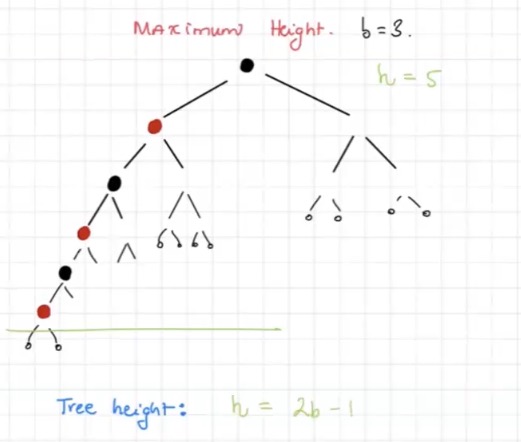 Maximum Height. b=3.
h = 5
Tree height: h = 2b - 1